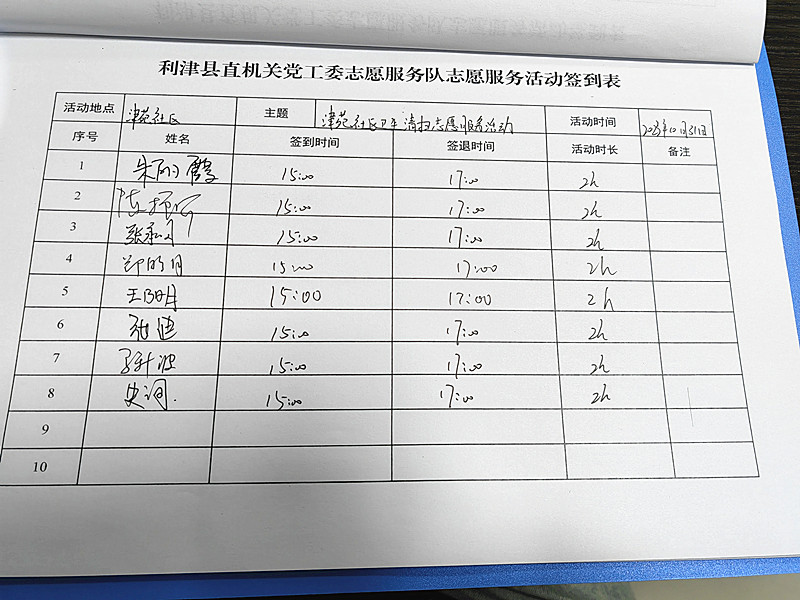 利津县直机关党工委志愿服务队志愿服务活动签到表
活动地点 津苑社区 主题 津苑社区卫生清扫志愿服务活动 活动时间
序号 姓名 签到时间 签退时间 活动时长 备注
1 15:00 17:00 2h
2 15:00 17:00 2h
3 15:00 17:00 2h
4 郑明月 15:00 17:00 2h
5 王明 15:00 17:00 2h
6 张迪 15:00 17:00 2h
7 15:00 17:00 2h
8 史润 15:00 17:00 2h
9
10